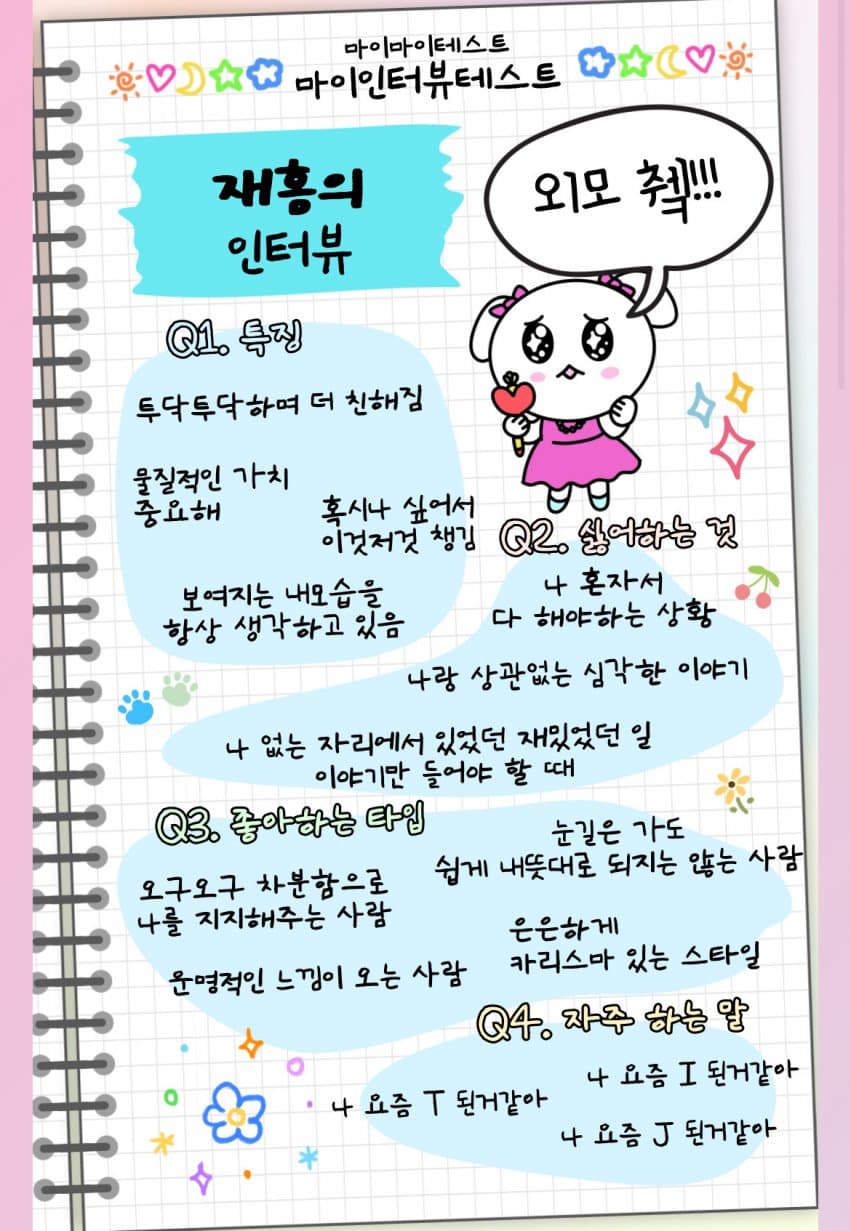 마이마이테스트
마이인터뷰테스트
재홍의
인터뷰
외모 췤!!!
Q1. 특징
투닥투닥하며 더 친해짐
물질적인 가치
중요해
혹시나 싶어서
이것저것 챙김
보여지는 내모습을
항상 생각하고 있음
Q2. 싫어하는 것
나 혼자서
다 해야하는 상황
나랑 상관없는 심각한 이야기
나 없는 자리에서 있었던 재밌었던 일
이야기만 들어야 할 때
Q3. 좋아하는 타입
눈길은 가도
쉽게 내뜻대로 되지는 않는 사람
오구오구 차분함으로
나를 지지해주는 사람
은은하게
카리스마 있는 스타일
운명적인 느낌이 오는 사람
Q4. 자주 하는 말
나 요즘 I 된거같아
나 요즘 T 된거같아
나 요즘 J 된거같아